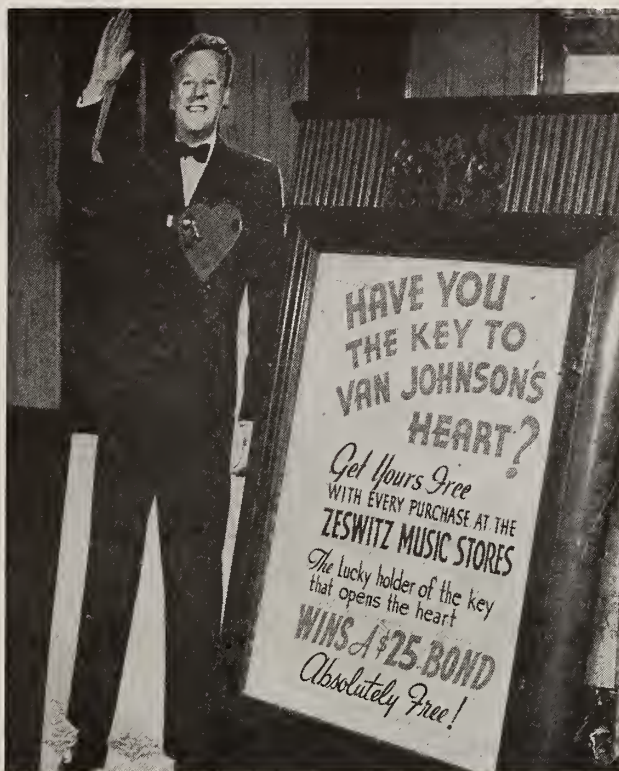 HAVE YOU
THE KEY TO
VAN JOHNSON'S
HEART?
Get Yours Free
WITH EVERY PURCHASE AT THE
ZESWITZ MUSIC STORES
The Lucky holder of the key
that opens the heart
WINS A $25 BOND
Absolutely Free!